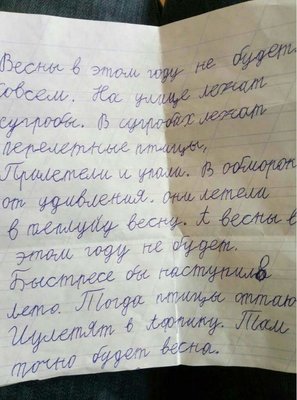 Весны в этом году не будет
совсем. На улице лежат
сугробы. В сугробах лежат
перелетные птицы,
Прилетели и упали. В обморок
от удивления. они летели
в теплую весну. А весны в
этом году не будет.
Быстрее бы наступило
лето. Тогда птицы оттаю
Иулетят в Африку. Там
точно будет весна.